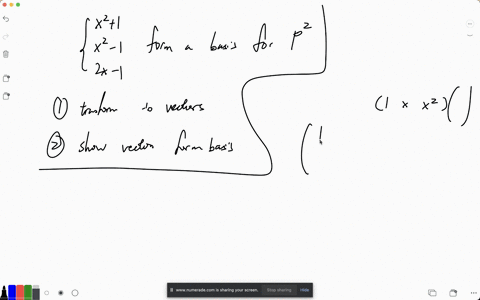 { x²+1
x²-1 form a basis for P²
2x-1
① transform to vectors
② show vectors form basis
(1 x x²)( )
( 1
www.numerade.com is sharing your screen. Stop sharing Hide